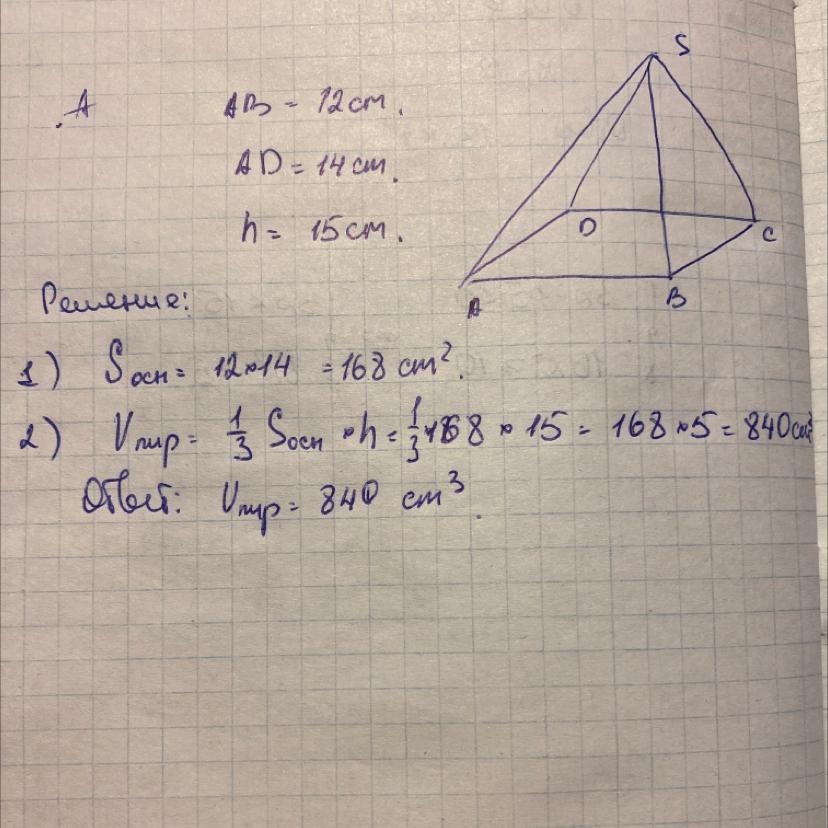 .A
AB = 12 cm.
AD = 14 cm.
h = 15 cm.
S
D
C
A
B
Решение:
1) Sосн = 12×14 = 168 cm².
2) Vпир = 1/3 Sосн × h = 1/3 × 168 × 15 = 168 × 5 = 840 cm³
Ответ: Vпир = 840 cm³.